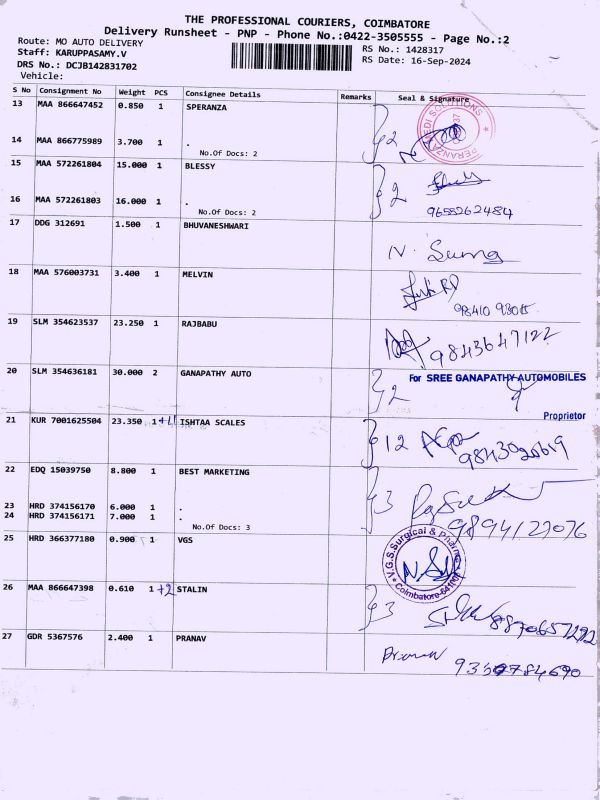 THE PROFESSIONAL COURIERS, COIMBATORE
Delivery Runsheet - PNP - Phone No.:0422-3505555 - Page No.:2
Route: MO AUTO DELIVERY
RS No.: 1428317
Staff: KARUPPASAMY.V
RS Date: 16-Sep-2024
DRS No.: DCJB142831702
Vehicle:
S No Consignment No Weight PCS Consignee Details Remarks Seal & Signature
13 MAA 866647452 0.850 1 SPERANZA
14 MAA 866775989 3.700 1 . 2
No.Of Docs: 2
15 MAA 572261804 15.000 1 BLESSY 2
16 MAA 572261803 16.000 1 . 9655262484
No.Of Docs: 2
17 DDG 312691 1.500 1 BHUVANESHWARI
N. Suma
18 MAA 576003731 3.400 1 MELVIN
19 SLM 354623537 23.250 1 RAJBABU
9843647122
20 SLM 354636181 30.000 2 GANAPATHY AUTO 2 For SREE GANAPATHY AUTOMOBILES
Proprietor
21 KUR 7001625504 23.350 1 +11 ISHTAA SCALES 12
9843020619
22 EDQ 15039750 8.800 1 BEST MARKETING 3
23 HRD 374156170 6.000 1 .
24 HRD 374156171 7.000 1 .
No.Of Docs: 3
9894127076
25 HRD 366377180 0.900 1 VGS V.G.S. Surgical & Pharma Coimbatore
26 MAA 866647398 0.610 1 +2 STALIN 3
8870657272
27 GDR 5367576 2.400 1 PRANAV Pranav
9360784690